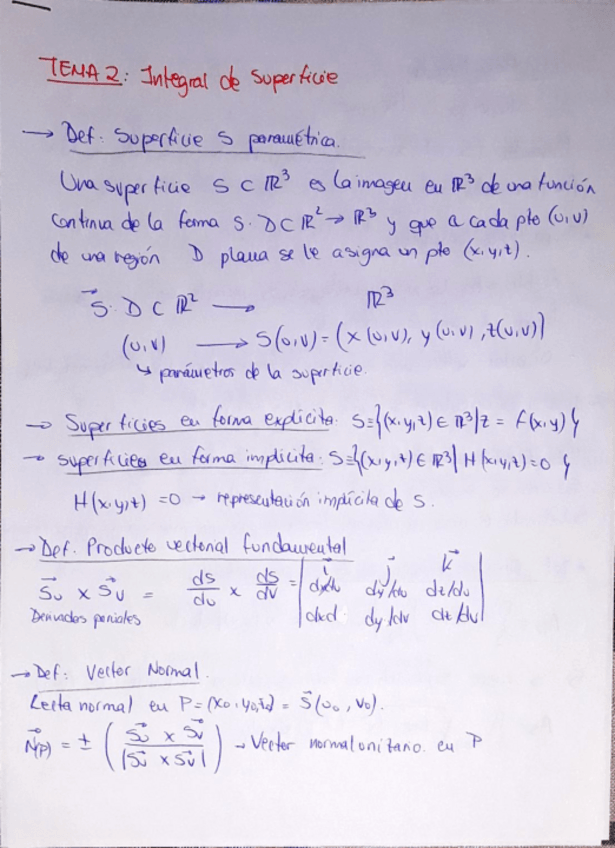 TEMA 2: Integral de Superficie
→ Def: Superficie S paramétrica.
Una superficie S ⊂ ℝ³ es la imagen en ℝ³ de una función
continua de la forma S. D ⊂ ℝ² → ℝ³ y que a cada pto (u,v)
de una región D plana se le asigna un pto (x,y,z).
S⃗. D ⊂ ℝ² → ℝ³
(u,v) → S(u,v) = (x(u,v), y(u,v), z(u,v))
↳ parámetros de la superficie.
→ Superficies en forma explícita: S={(x,y,z) ∈ ℝ³ | z = f(x,y)}
→ Superficies en forma implícita: S={(x,y,z) ∈ ℝ³ | H(x,y,z)=0}
H(x,y,z) = 0 → representación implícita de S.
→ Def. Producto vectorial fundamental
S⃗u × S⃗v = ds/du × ds/dv = | i⃗ j⃗ k⃗
dx/du dy/du dz/du
Derivadas parciales dxd dy/dv dz/dv |
→ Def: Vector Normal.
Recta normal en P=(x₀,y₀,z₀) = S⃗(u₀,v₀).
N⃗(P) = ± ( S⃗u × S⃗v / |S⃗u × S⃗v| ) → Vector normal unitario en P